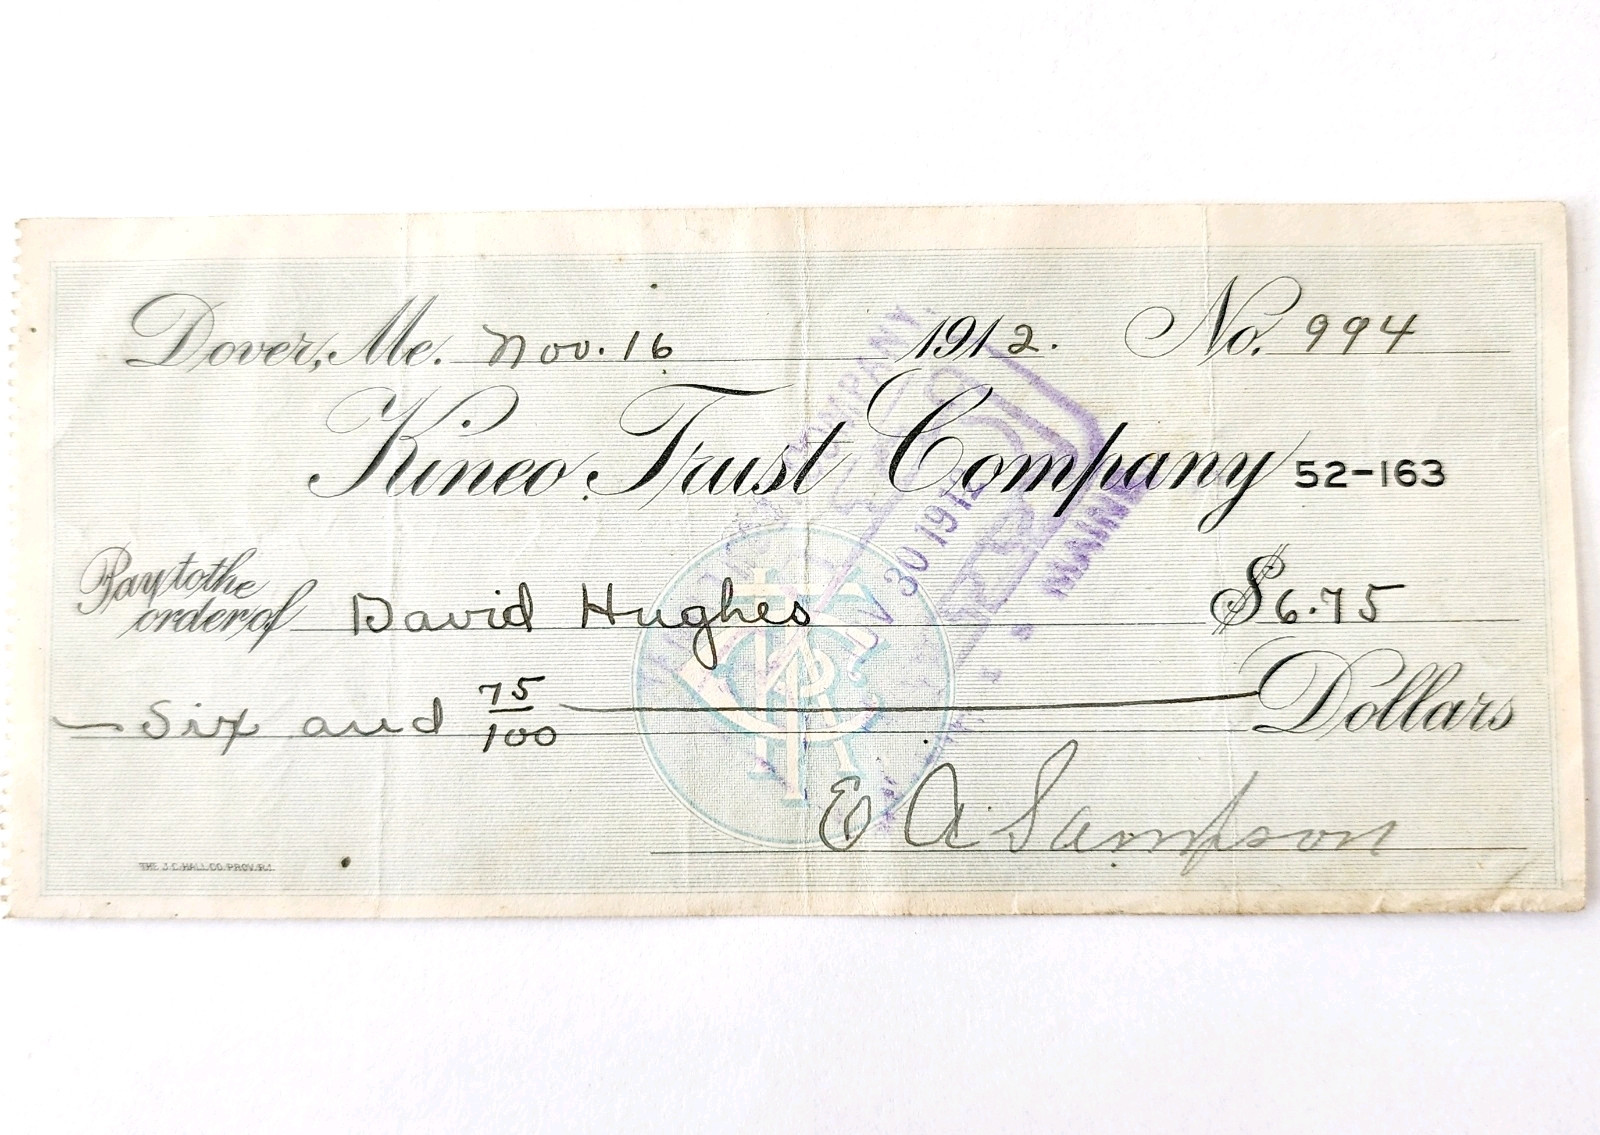 Dover, Me. Nov. 16 1912. No. 994
Kineo Trust Company 52-163
Pay to the
order of David Hughes $6.75
Six and 75/100 Dollars
E A Sampson
THE J.C. HALL CO. PROV. R.I.
COMPANY
NOV 30 1912
MAINE